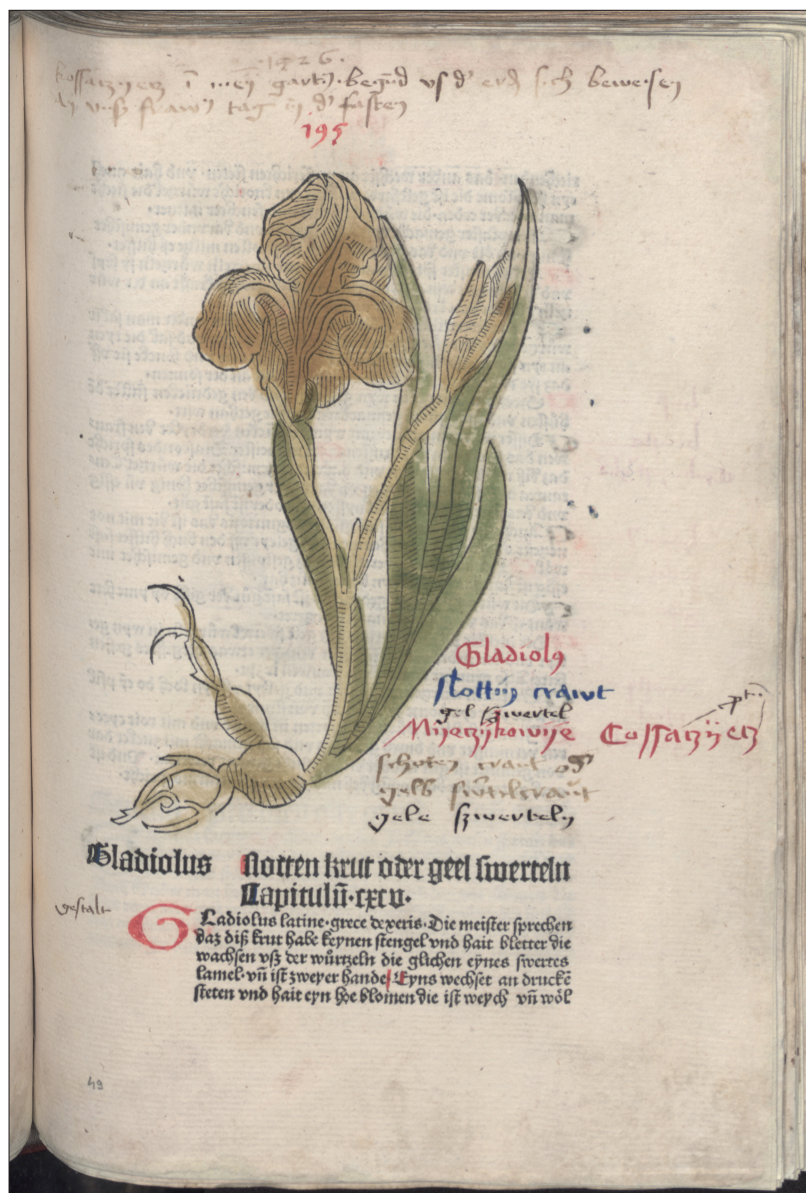 1526.
gartn begund vß d' erd sich beweisen
tag in d' fasten
195
Gladiolꝯ
slotttin crawt
gel szwertel
Myeczykowije Cossaczijecz
schoten craut od'
gelb swertelcraut
gele szwerteln
Gladiolus Slotten krut oder geel swerteln
Capitulū·cxcv·
gestalt
GLadiolus latine·grece dexeris·Die meister sprechen
daz diß krut habe keynen stengel vnd hait bletter die
wachsen vß der wůrtzeln die glichen eynes swertes
lamel·vn̄ ist zweyer hande Eyns wechset an druckē
steten vnd hait eyn hoe blomen die ist weych vn̄ wol
49